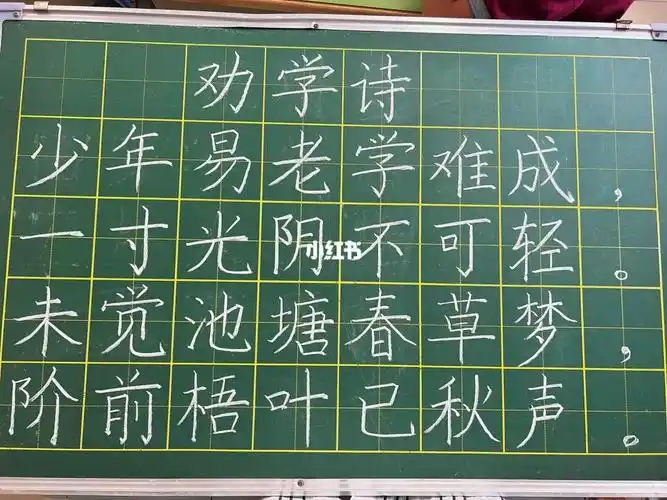 劝学诗
少年易老学难成，
一寸光阴不可轻。
未觉池塘春草梦，
阶前梧叶已秋声。
小红书